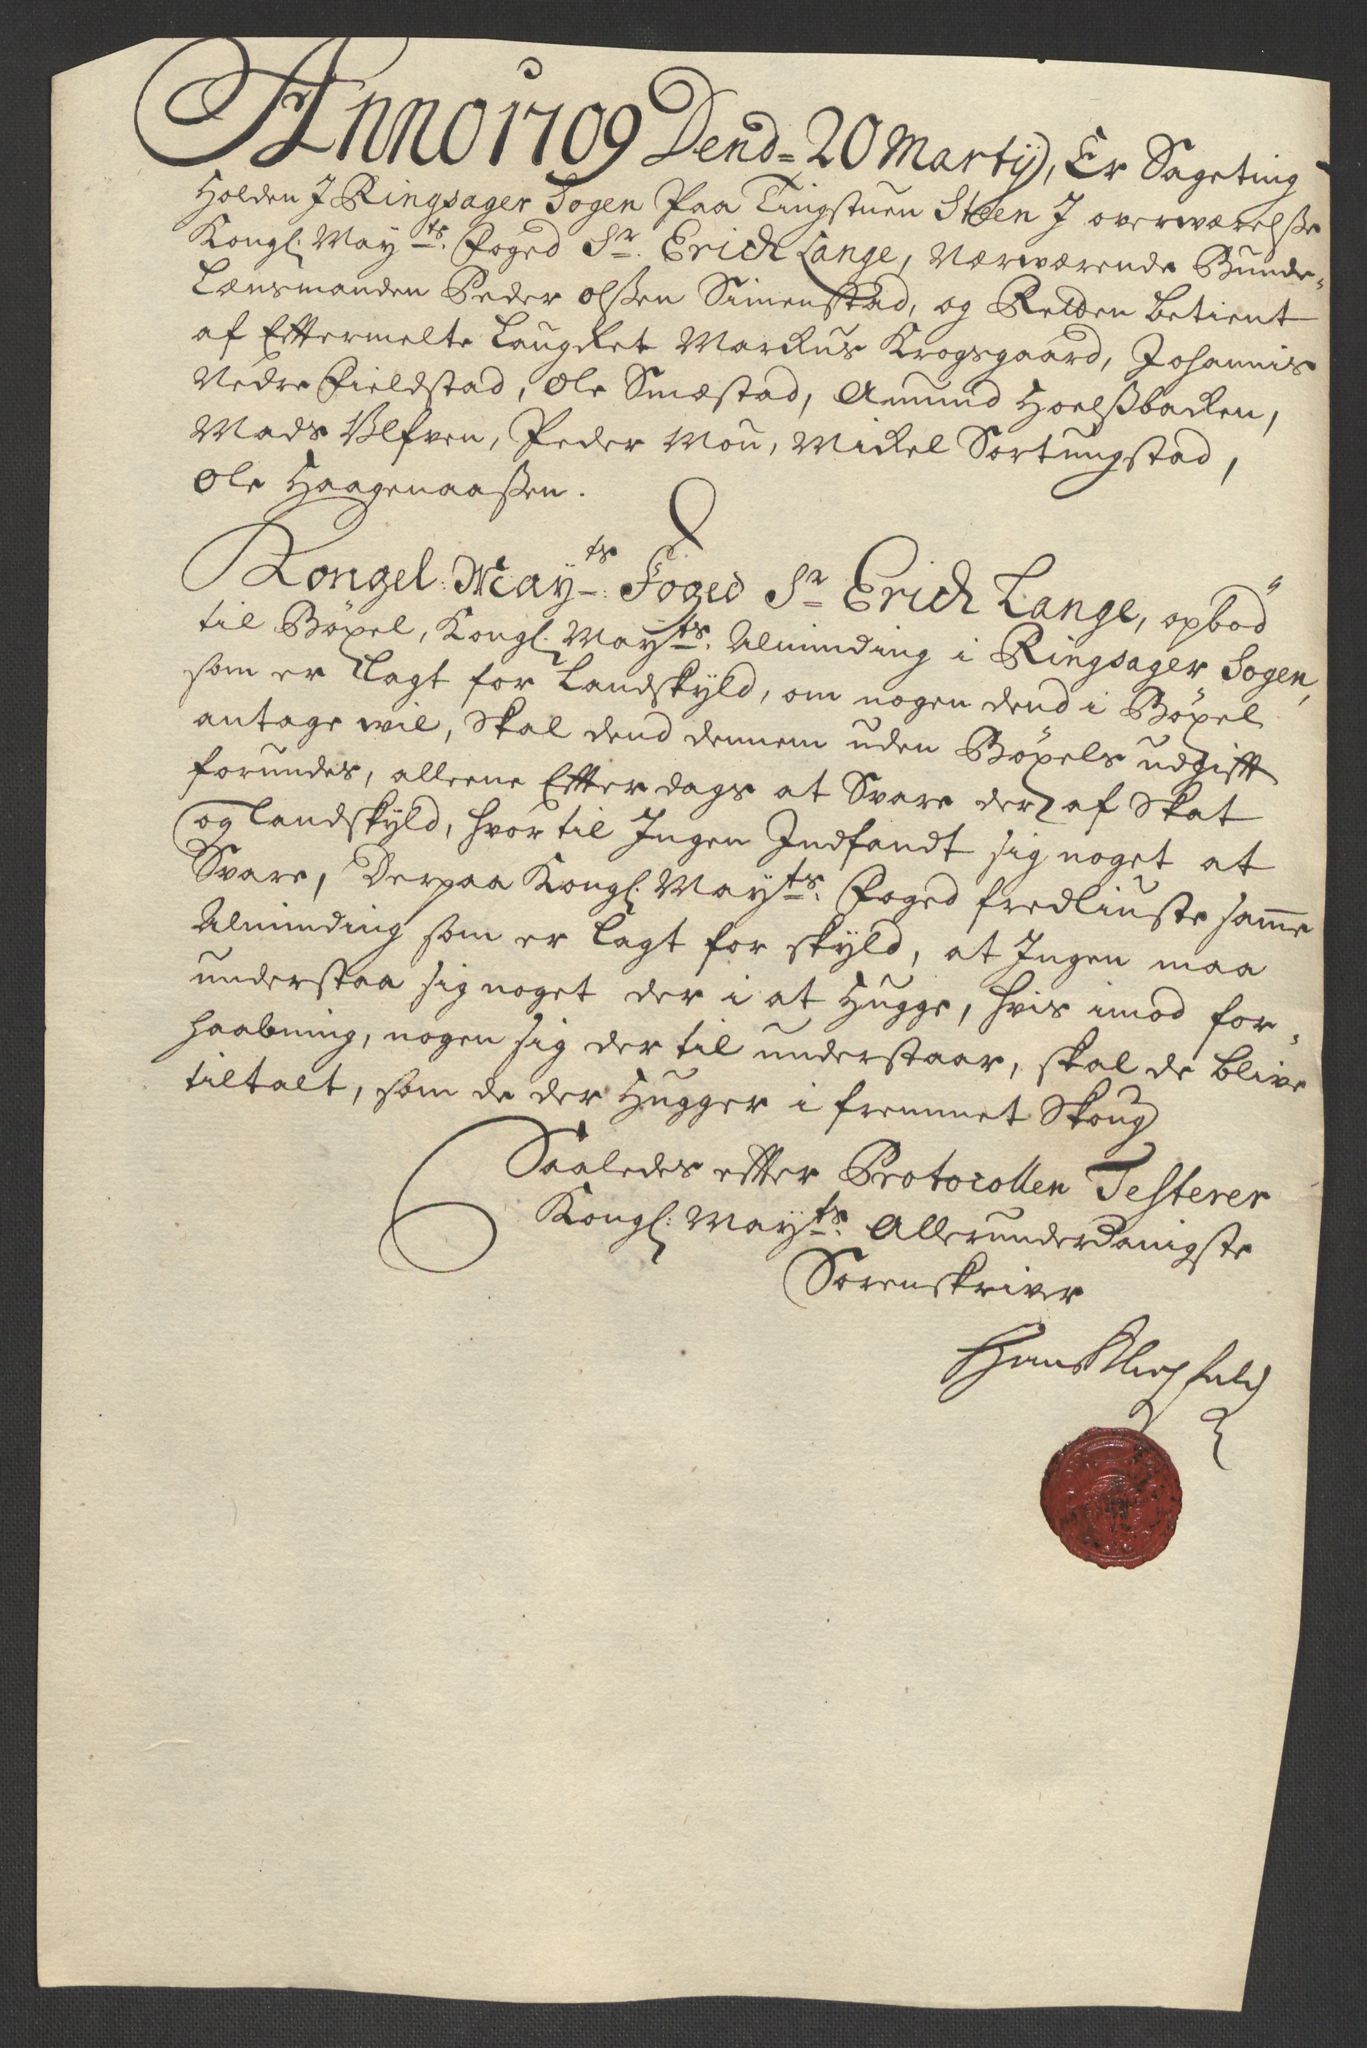 Anno 1709 Dend= 20 Martÿ, Er Sageting
Holden J Ringsager Sogen Paa Tingstuen Steen J overwærelsße
Kongl: Mayts. Foged Sr. Erich Lange, Nærwærende Bunde-
Lænsmanden Peder olßen Simenstad, og Retten betient
af Eftermelte Laugret Markus Krogsgaard, Johannis
Nedre Fieldstad, Ole Smæstad, Amund Hoelßbacken,
Mads Ulfven, Peder Mou, Mickel Sortungstad,
Ole Haagenaaßen.
Kongel: Mayts: Foged Sr Erich Lange, opbød
til Böxel, Kongl. Mayts. Alminding i Ringsager Sogen,
som er Lagt for Landskyld, om nogen dend i Böxel
antage wil, Skal dend dennem uden Böxels udgifft
forundes, alleene Efterdags at Svare der af Skat
og Landskyld, hvor til Jngen Jndfandt sig noget at
Svare, Derpaa Kongl. Mayts. Foged fredliuste samme
Alminding som er Lagt for skyld, at Jngen maa
understaa sig noget der i at Hugge, hvis imod for-
haabning, nogen sig der til understaar, skal de blive
tiltalt, som de der Hugger i fremmet Skoug
Saaledes efter Protocollen Testerer
Kongl: Mayts. Allerunderdanigste
Sorenskriver
Hans